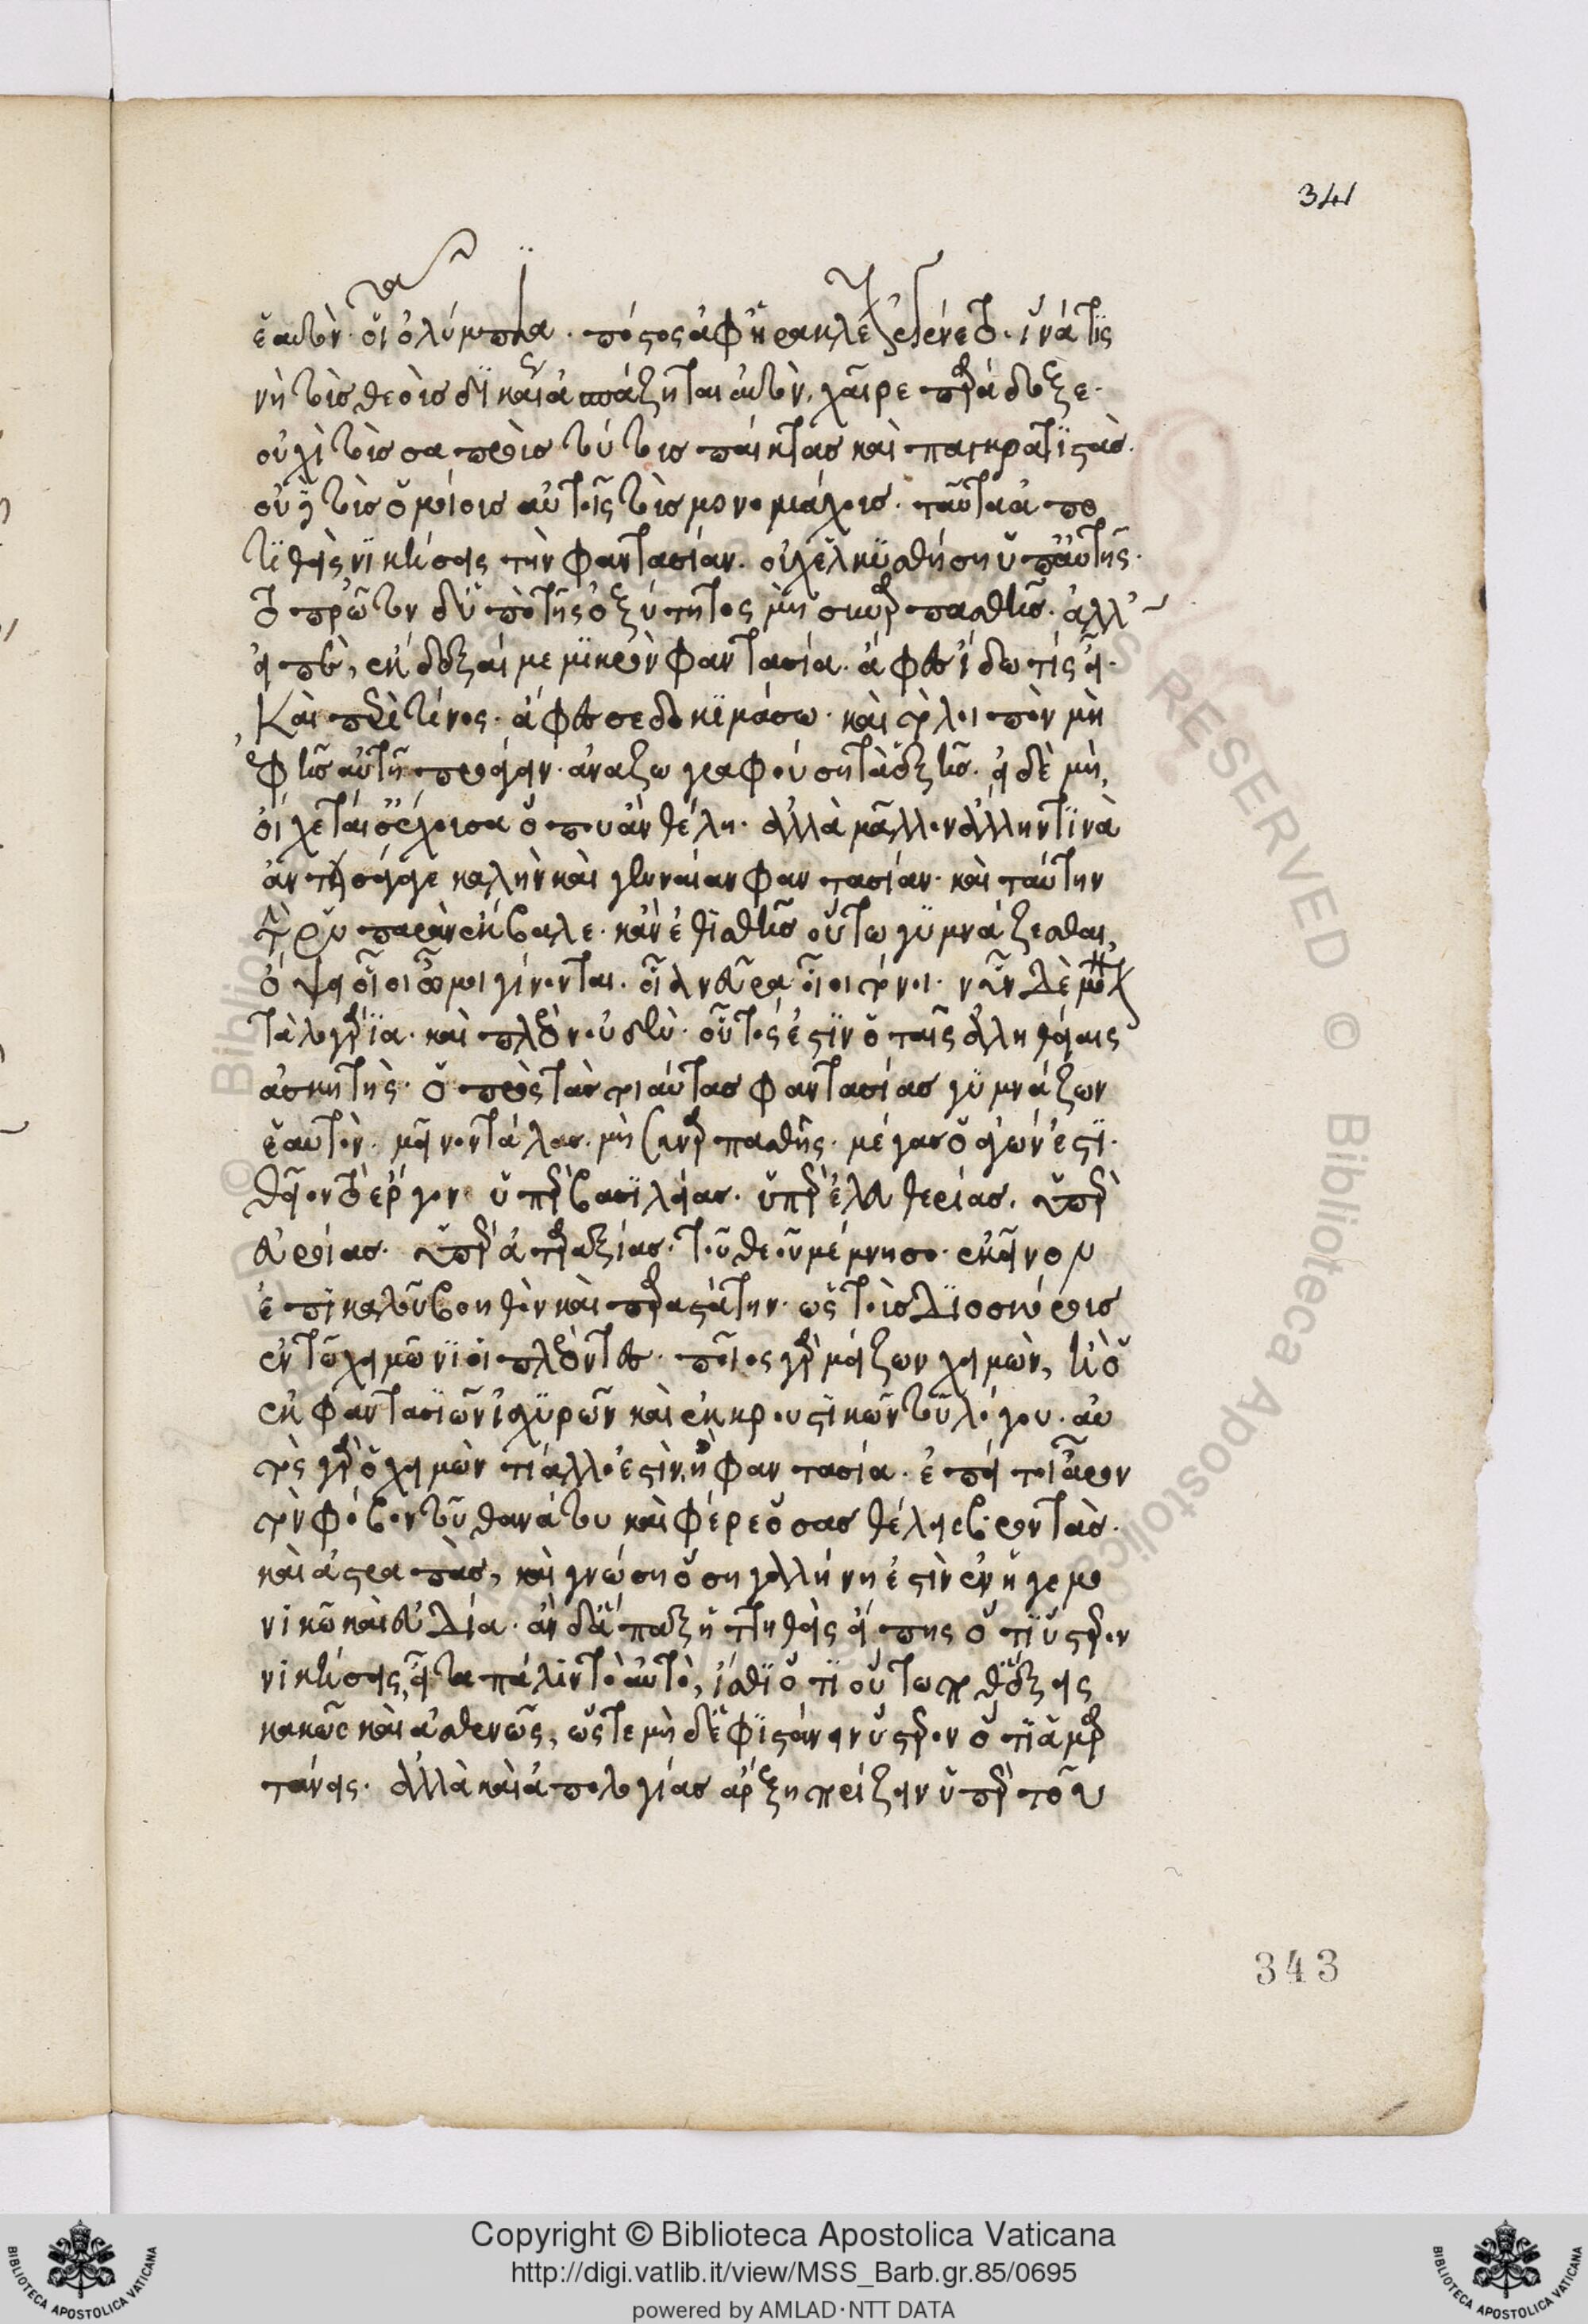 341
ἑαυτὸν· οἷ ὀλύμπια· πόστος ἀφ' ἡρακλέους ἐγένετο· ἵνα τὶς
νὴ τοὺς θεοὺς δικαίως ἀσπάζηται αὐτὸν, χαῖρε παράδοξε·
οὐχὶ τοὺς σαπροὺς τούτους πύκτας καὶ παγκρατιστὰς·
οὐδὲ τοὺς ὁμοίους αὐτοῖς τοὺς μονομάχους· ταῦτα ἀντι
τιθεὶς νικήσεις τὴν φαντασίαν· οὐχ ἑλκυσθήση ὑπ' αὐτῆς·
τὸ πρῶτον δ' ὑπὸ τῆς ὀξύτητος μὴ συναρπασθῆς· ἀλλ'
εἰπὲ, ἔκδεξαί με μικρὸν φαντασία· ἄφες ἴδω τίς εἶ·
καὶ περὶ τίνος· ἄφες σε δοκιμάσω· καὶ τὸ λοιπὸν μὴ
ἐφῆς αὐτῆ προάγειν· ἀναζωγραφούση τὰ ἑξῆς· εἰ δὲ μὴ,
οἴχεταί σε ἔχουσα ὅπου ἂν θέλη· ἀλλὰ μᾶλλον ἄλλην τινὰ
ἀντεισάγαγε καλὴν καὶ γενναίαν φαντασίαν· καὶ ταύτην
τὴν ῥυπαρὰν ἔκβαλε· κἂν ἐθισθῆς οὕτω γυμνάζεσθαι,
ὄψει οἷοι ὦμοι γίνονται· οἷα νεῦρα οἷοι τόνοι· νῦν δὲ μόνον
τὰ λογάρια· καὶ πλέον οὐδὲν· οὗτός ἐστιν ὁ ταῖς ἀληθείαις
ἀσκητὴς· ὁ πρὸς τὰς τοιαύτας φαντασίας γυμνάζων
ἑαυτὸν· μεῖνον τάλας· μὴ συναρπασθῆς· μέγας ὁ ἀγών ἐστι·
θεῖον τὸ ἔργον· ὑπὲρ βασιλείας· ὑπὲρ ἐλευθερίας· ὑπὲρ
εὐροίας· ὑπὲρ ἀταραξίας· τοῦ θεοῦ μέμνησο· ἐκεῖνον
ἐπικαλοῦ βοηθὸν καὶ παραστάτην· ὡς τοὺς Διοσκούρους
ἐν τῶ χειμῶνι οἱ πλέοντες· ποῖος γὰρ μείζων χειμὼν, ἢ ὁ
ἐκ φαντασιῶν ἰσχυρῶν καὶ ἐκκρουστικῶν τοῦ λόγου· αὐ
τὸς γὰρ ὁ χειμὼν τί ἄλλο ἐστὶν, ἢ φαντασία· ἐπεί τοι ἆρον
τὸν φόβον τοῦ θανάτου καὶ φέρε ὅσας θέλεις βροντὰς·
καὶ ἀστραπὰς, καὶ γνώση ὅση γαλήνη ἐστὶν ἐν ἡγεμο
νικῶ καὶ εὐδία· ἂν δ' ἅπαξ ἡττηθεὶς εἴπης ὅτι ὕστερον
νικήσεις, εἶτα πάλιν τὸ αὐτὸ, ἴσθι ὅτι οὕτω ποθ' ἕξεις
κακῶς καὶ ἀσθενῶς, ὥστε μὴ δ' ἐφιστάνειν ὕστερον ὅτι ἁμαρ
τάνεις· ἀλλὰ καὶ ἀπολογίας ἄρξη πορίζειν ὑπὲρ τοῦ
343
Copyright © Biblioteca Apostolica Vaticana
http://digi.vatlib.it/view/MSS_Barb.gr.85/0695
powered by AMLAD·NTT DATA